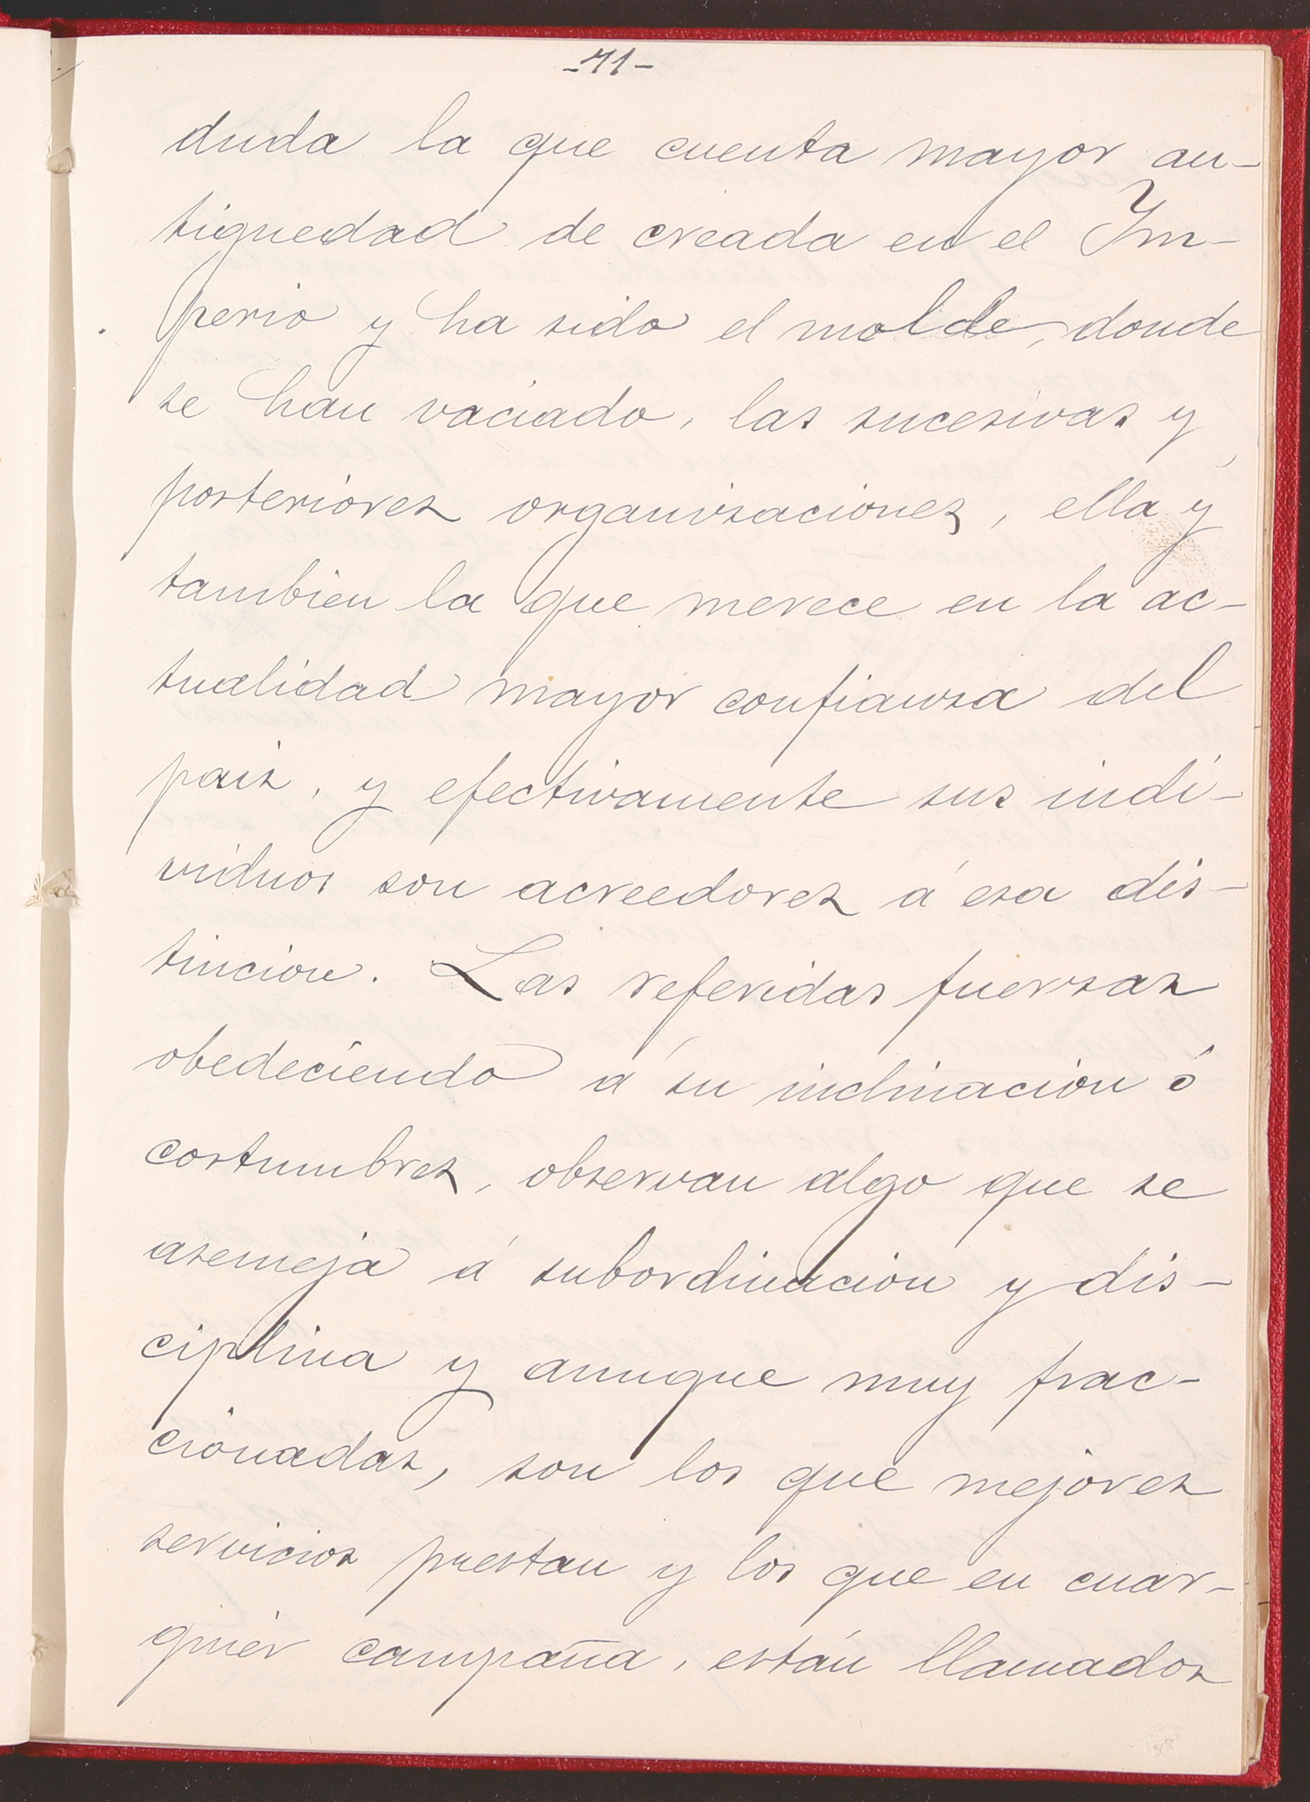 -71-
duda la que cuenta mayor an-
tiguedad de creada en el Im-
perio y ha sido el molde, donde
se han vaciado, las sucesivas y
posteriores organizaciones, ella y
tambien la que merece en la ac-
tualidad mayor confianza del
pais, y efectivamente sus indi-
viduos son acreedores á esa dis-
tincion. Las referidas fuerzas
obedeciendo á su inclinacion ó
costumbres, observan algo que se
asemeja á subordinacion y dis-
ciplina y aunque muy frac-
cionadas, son los que mejores
servicios prestan y los que en cuar-
quier campaña, están llamados